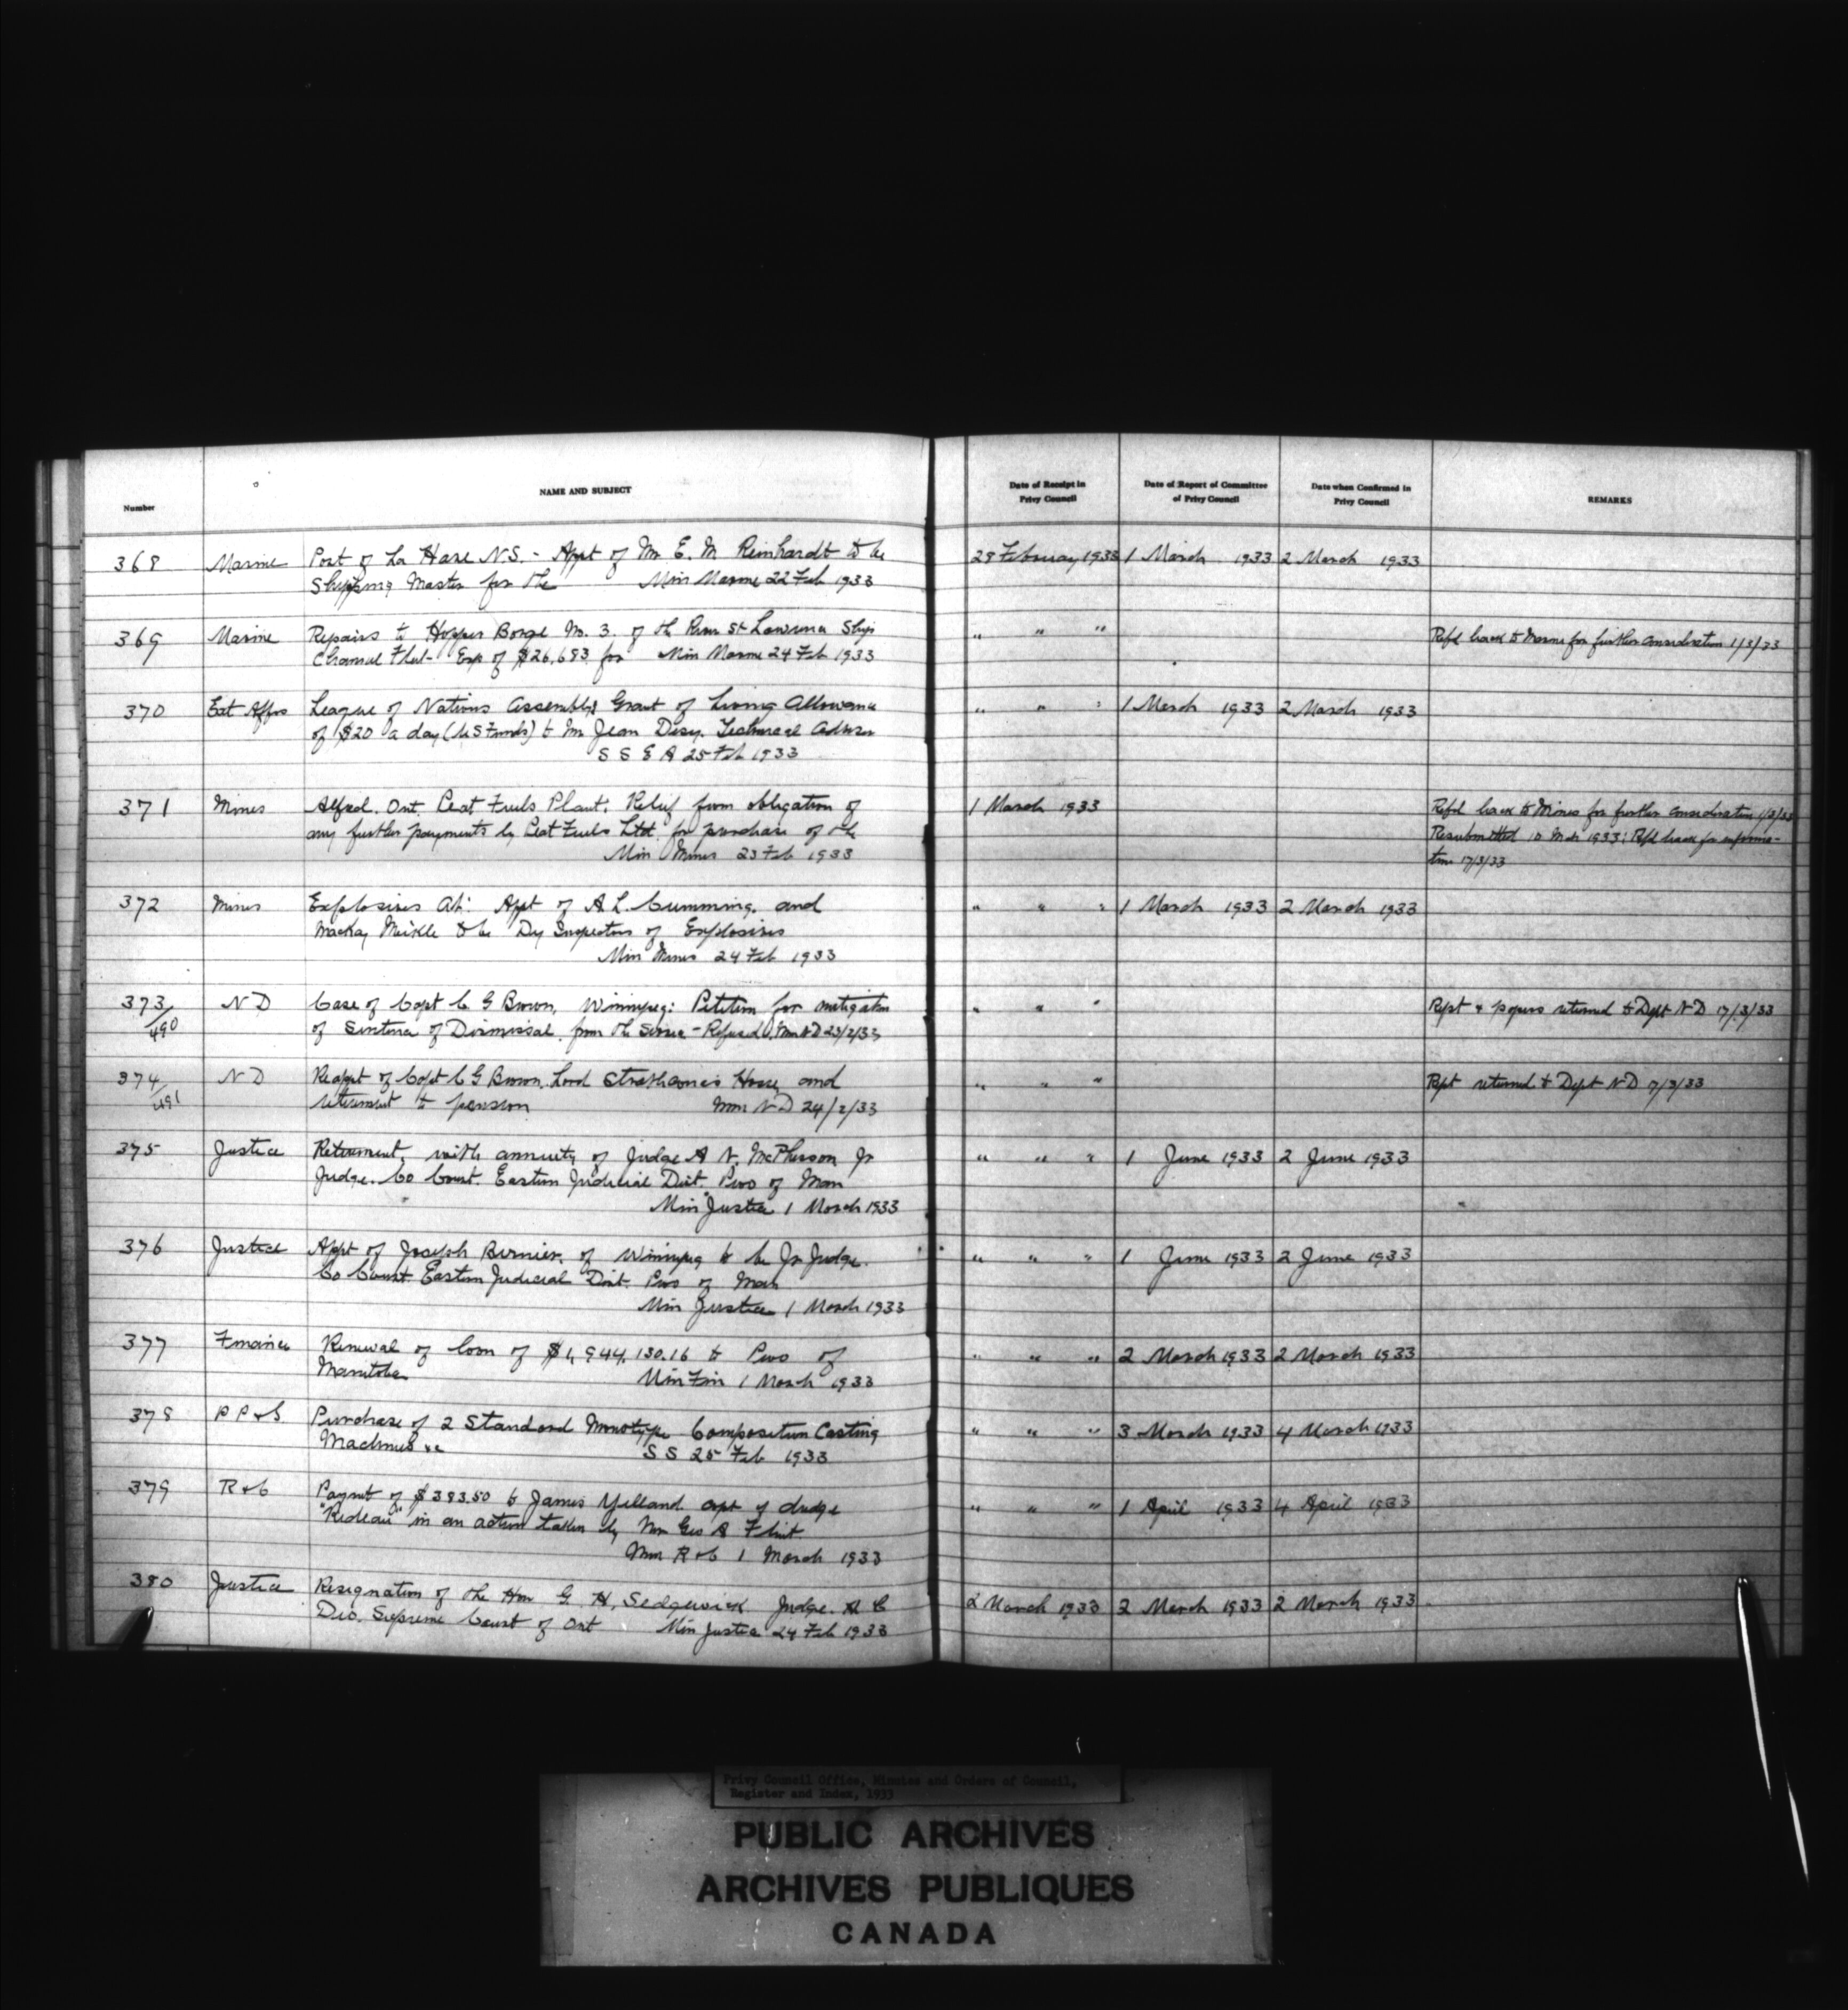 Number
NAME AND SUBJECT
Date of Receipt in
Privy Council
Date of Report of Committee
of Privy Council
Date when Confirmed in
Privy Council
REMARKS
368 Marine Port of La Have N.S. - Appt of Mr E. M Reinhardt to be 28 February 1933 1 March 1933 2 March 1933
Shipping Master for the Min Marine 22 Feb 1933
369 Marine Repairs to Hopper Barge No. 3. of the River St Lawrence Ship " " " Refd back to Marine for further consideration 1/3/33
Channel Fleet - Exp of $26,683 for Min Marine 24 Feb 1933
370 Ext Affrs League of Nations Assembly Grant of Living Allowance " " " 1 March 1933 2 March 1933
of $20 a day (US Funds) to Mr Jean Desy. Technical Adviser
S S E A 25 Feb 1933
371 Mines Alfred. Ont. Peat Fuels Plant. Relief from obligation of 1 March 1933 Refd back to Mines for further consideration 1/3/33
any further payments by Peat Fuels Ltd. for purchase of the Resubmitted 10 Mch 1933; Refd back for informa-
Min Mines 23 Feb 1933 tion 17/3/33
372 Mines Explosives Act: Appt of A L. Cumming. and " " " 1 March 1933 2 March 1933
Mackay Meikle to be Dy Inspectors of Explosives
Min Mines 24 Feb 1933
373/490 N D Case of Capt C G Brown, Winnipeg: Petition for mitigation " " " Rept & papers returned to Dept N D 17/3/33
of Sentence of Dismissal from the Service - Refused. Min N D 23/2/33
374/491 N D Reappt of Capt C G Brown. Lord Strathcona's Horse and " " " Rept returned to Dept N D 17/3/33
retirement to pension Min N D 24/2/33
375 Justice Retirement, with annuity of Judge A N. McPherson Jr " " " 1 June 1933 2 June 1933
Judge. Co Court. Eastern Judicial Dist. Prov of Man
Min Justice 1 March 1933
376 Justice Appt of Joseph Bernier. of Winnipeg to be Jr Judge. " " " 1 June 1933 2 June 1933
Co Court Eastern Judicial Dist. Prov of Man
Min Justice 1 March 1933
377 Finance Renewal of loan of $1,944,130.16 to Prov of " " " 2 March 1933 2 March 1933
Manitoba Min Fin 1 March 1933
378 P P & S Purchase of 2 Standard Monotype Composition Casting " " " 3 March 1933 4 March 1933
Machines &c S S 25 Feb 1933
379 R & C Paymt of $383.50 to James Yelland capt of dredge " " " 1 April 1933 4 April 1933
"Rideau" in an action taken by Mr Geo A Flint.
Min R & C 1 March 1933
380 Justice Resignation of the Hon G H. Sedgewick Judge. H C 2 March 1933 2 March 1933 2 March 1933
Div. Supreme Court of Ont Min Justice 24 Feb 1933
Privy Council Office, Minutes and Orders of Council,
Register and Index, 1933
PUBLIC ARCHIVES
ARCHIVES PUBLIQUES
CANADA